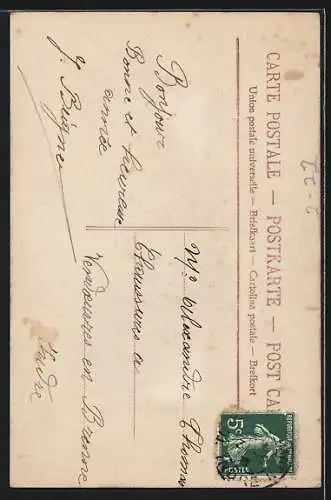 CARTE POSTALE — POSTKARTE — POST CA
Union postale universelle — Briefkaart — Cartolina postale — Brefkort
Bonjour
Bonne et heureuse
année
J.
Mr Alexandre Thomas
Chaussures à
Vendoeuvres en Brenne
Indre
REPUBLIQUE FRANÇAISE
5c
POSTES